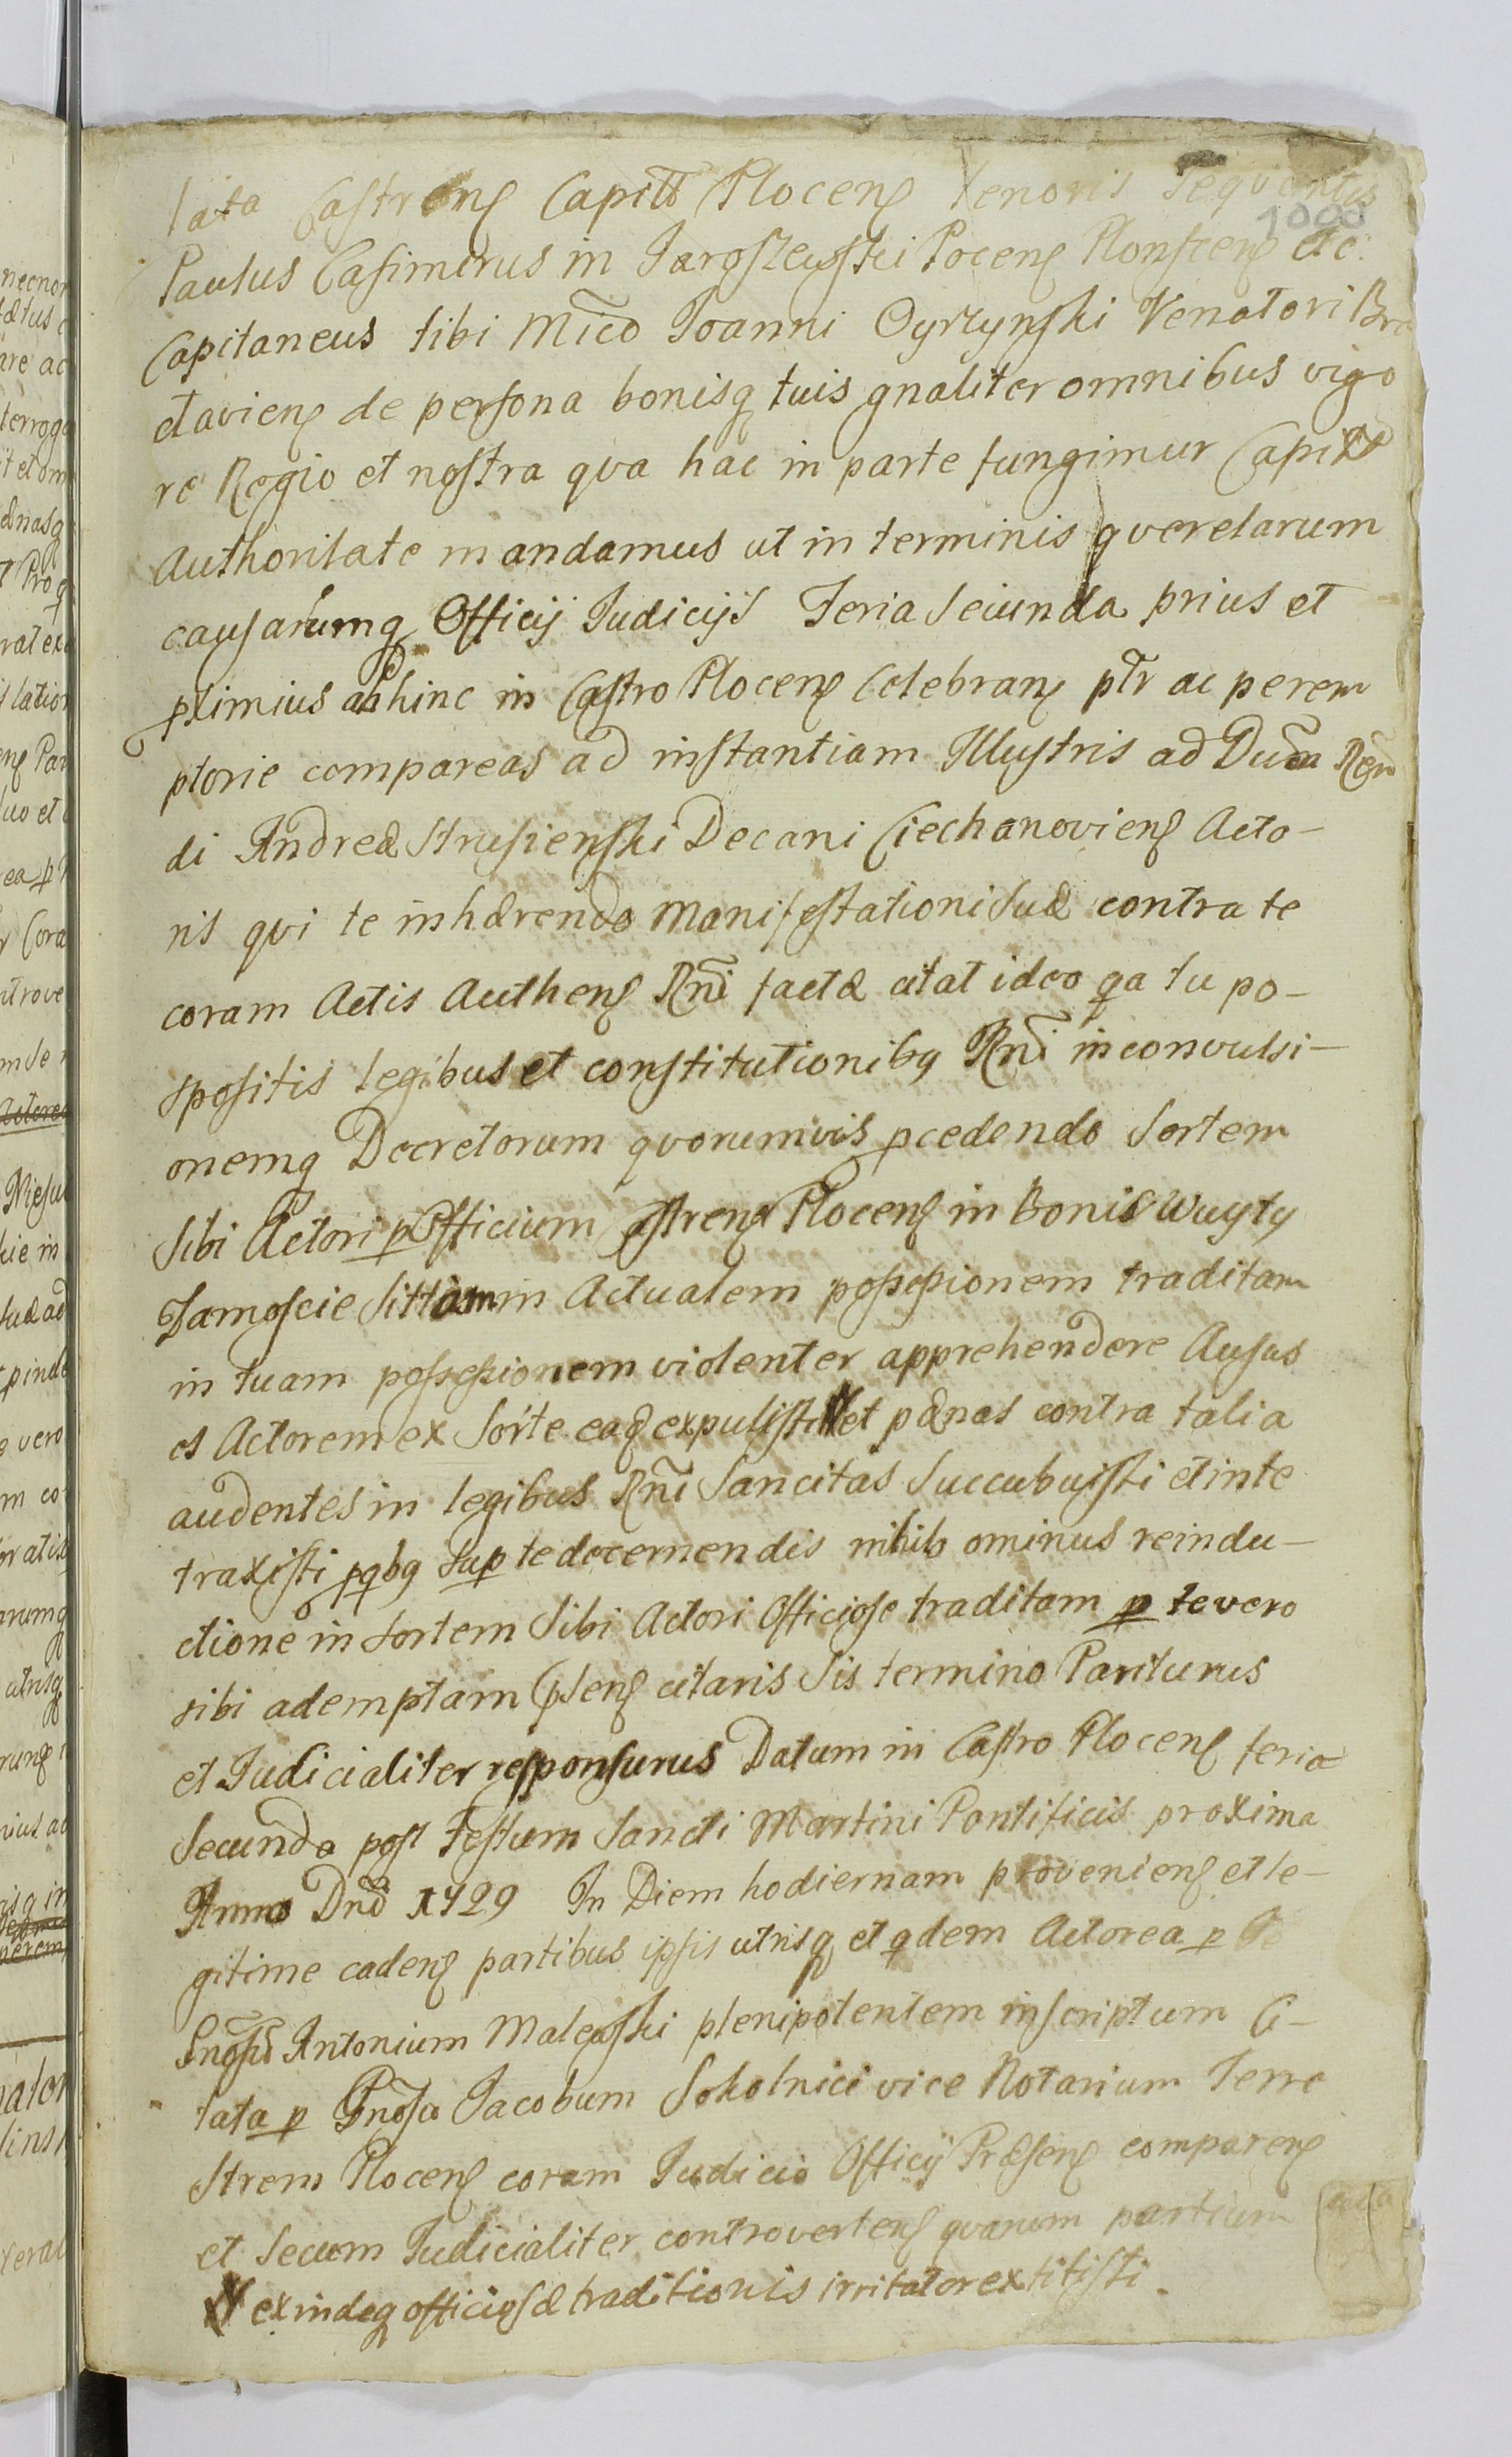 tata Castrens Capitl Plocens tenoris sequentis
1000
Paulus Casimirus in Jaroszewski Pocens Plonscens etc.
Capitaneus tibi Mfco Joanni Oyrzynski Venatori Bra
ctaviens de persona bonisq tuis gnaliter omnibus vigo
re Regio et nostra qva hac in parte fungimur Capitl
Authoritate mandamus ut in terminis qverelarum
causarumq Officij Judicijs Feria Secunda prius et
pximius abhinc in Castro Plocens Celebrans ptr ac perem
ptorie compareas ad instantiam Illustris ad Dum Ren
di Andreæ Strusienski Decani Ciechanoviens Acto-
ris qvi te inhærendo Manifestationi Suæ contra te
coram Actis Authens Rni factæ citat ideo qa tu po-
spositis legibus et constitutionibq Rni in convulsi-
onemq Decretorum qvorumvis pcedendo Sortem
Sibi Actori p Officium Castrens Plocens in Bonis Wuyty
Zamoscie Sittam in Actualem possessionem traditam
in tuam possessionem violenter apprehendere Ausus
es Actorem ex Sorte eaq expulisti et pænas contra talia
audentes in legibus Rni Sancitas Succubuisti et in te
traxisti p qbq sup te decernendis nihilominus reindu-
ctione in Sortem Sibi Actori Officiose traditam p te vero
sibi ademptam pSens citaris Sis termino Pariturus
et Judicialiter responsurus Datum in Castro Plocens feria
Secunda post Festum Sancti Martini Pontificis proxima
Anno Dnd 1729 In Diem hodiernam proveniens et le-
gitime cadens partibus ipsis utrisq et qdem Actorea p Ge
Gnosu Antonium Malewski plenipotentem inscriptum Ci-
tata p Gnosu Jacobum Sokolnici vice Notarium Terre
Strem Plocens coram Judicio Officij Præsens comparens
et Secum Judicialiter controvertens qvarum partium
exindeq officiosæ traditionis irritator extitisti.